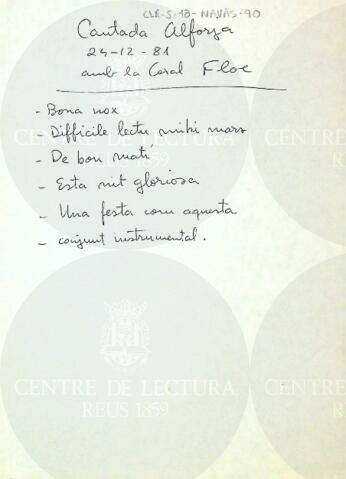 CLR-S-18-NAVÀS-90
Cantada Alforja
24-12-81
amb la Coral Floc
- Bona nox
- Difficile lectu mihi mars
- De bon matí
- Esta nit gloriosa
- Una festa com aquesta
- conjunt instrumental.
CENTRE DE LECTURA
REUS 1859
CENTRE DE LECTURA
REUS 1859